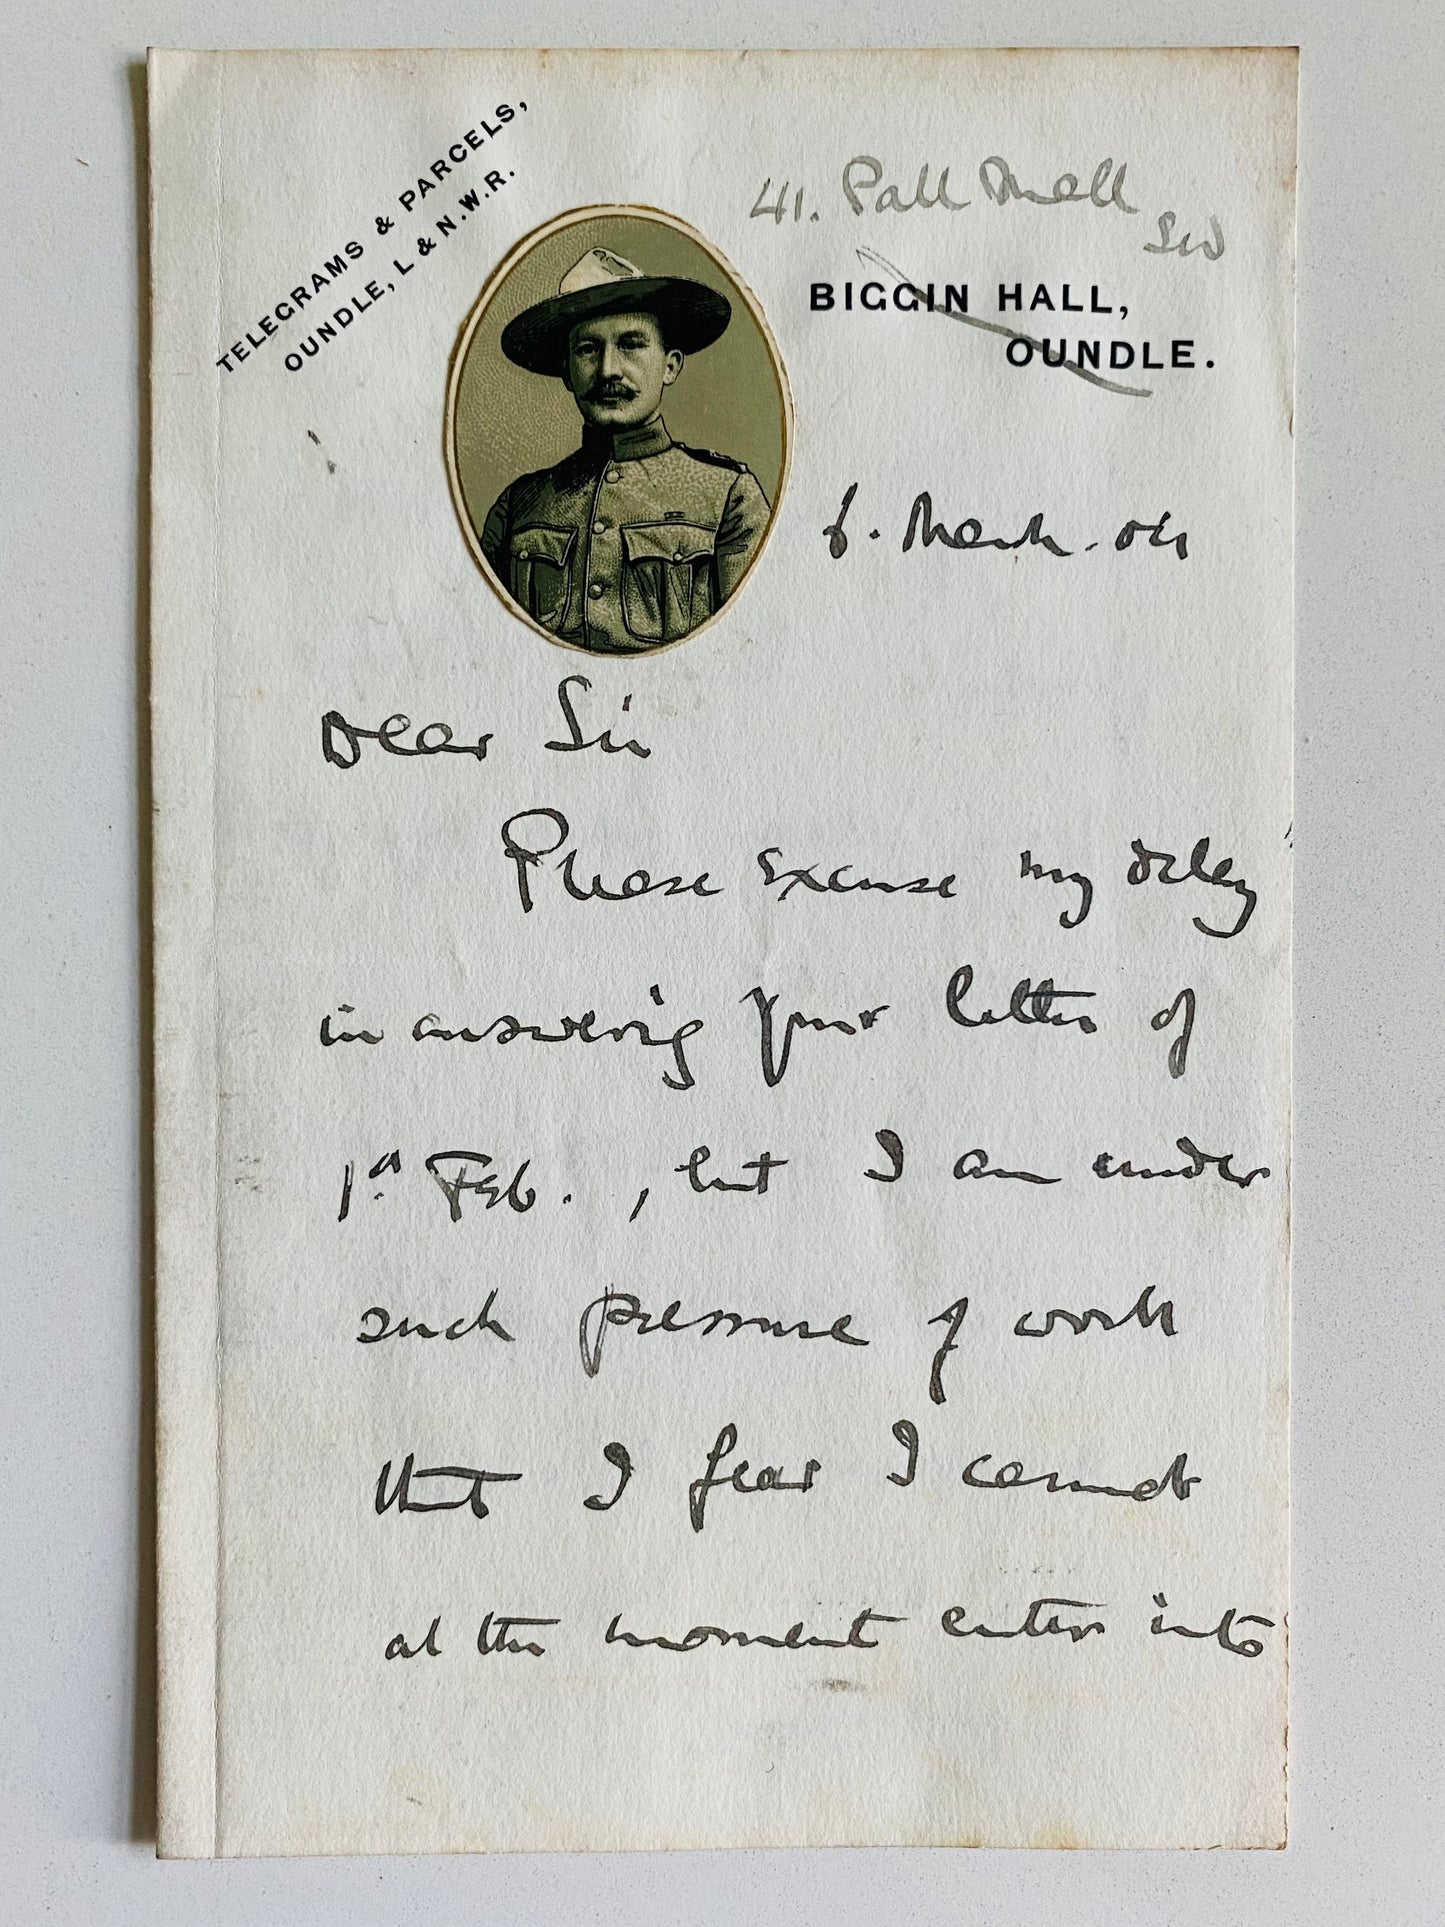 TELEGRAMS & PARCELS,
OUNDLE, L & N.W.R.
41. Pall Mall
SW
BIGGIN HALL,
OUNDLE.
6. March. 04
Dear Sir
Please excuse my delay
in answering your letter of
1st Feb., but I am under
such pressure of work
that I fear I cannot
at the moment enter into